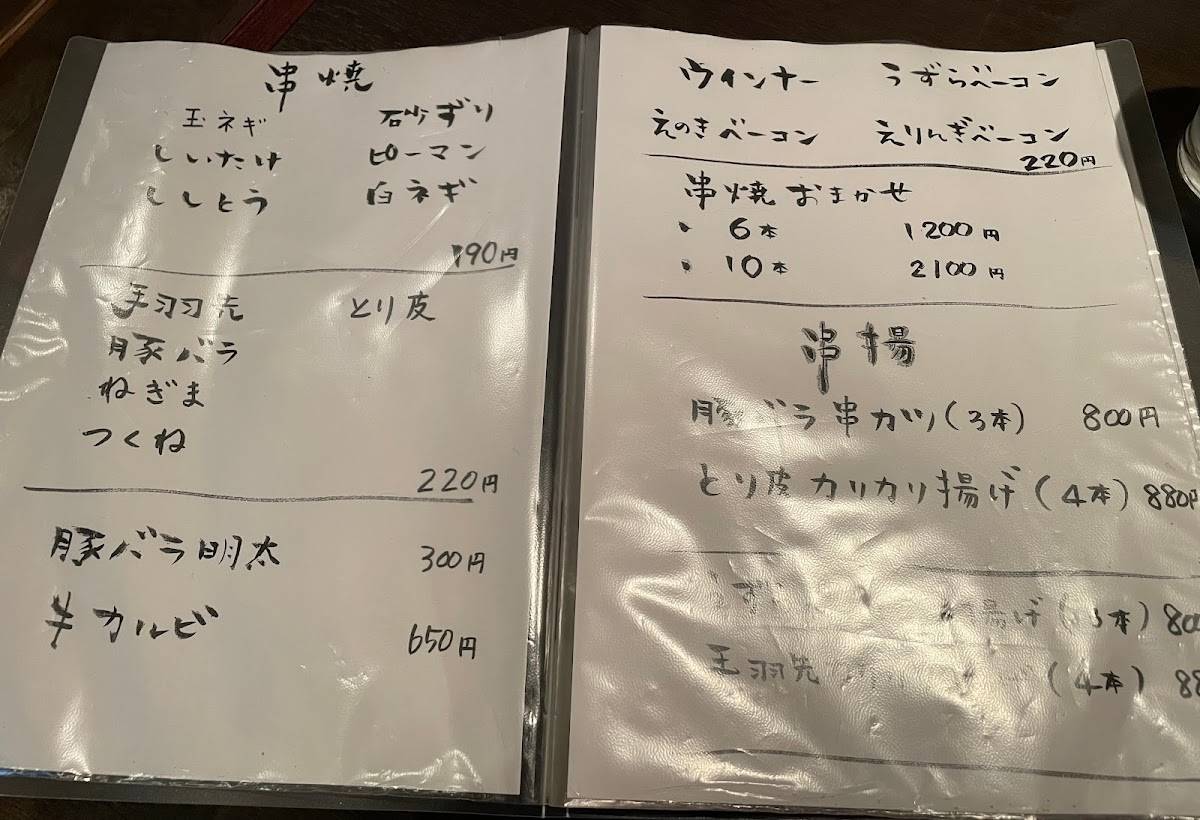 串焼
玉ネギ 砂ずり
しいたけ ピーマン
ししとう 白ネギ
190円
手羽先 とり皮
豚バラ
ねぎま
つくね
220円
豚バラ明太 300円
牛カルビ 650円
ウインナー うずらベーコン
えのきベーコン えりんぎベーコン
220円
串焼おまかせ
・ 6本 1200円
・ 10本 2100円
串揚
豚バラ串カツ(3本) 800円
とり皮カリカリ揚げ(4本) 880円
うずら 揚げ(3本) 800
手羽先 (4本) 88